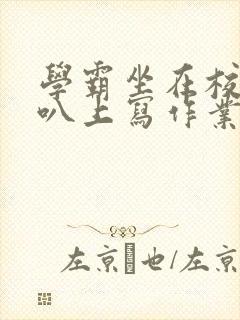 學霸坐在校
叭上寫作業
左京也/左京